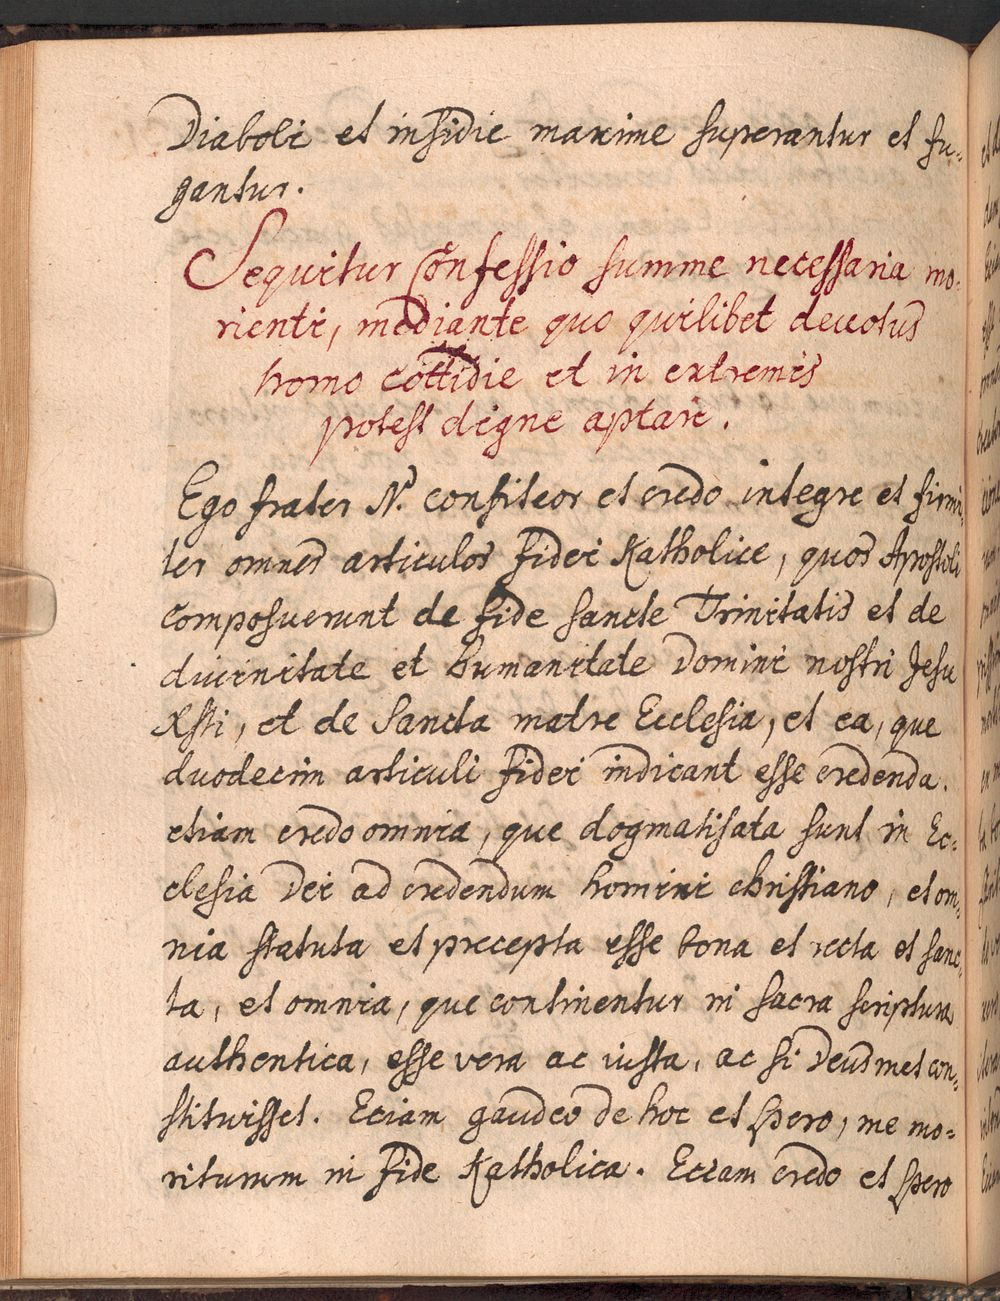 Diaboli et insidie maxime superantur et fu-
gantur.
Sequitur Confessio summe necessaria mo-
rienti, mediante quo quilibet devotus
homo cottidie et in extremis
potest digne aptari.
Ego frater N. confiteor et credo integre et firmi-
ter omnes articulos fidei Katholice, quos Apostoli
composuerunt de fide sancte Trinitatis et de
divinitate et humanitate Domini nostri Jesu
Xsti, et de Sancta matre Ecclesia, et ea, que
duodecim articuli fidei indicant esse credenda.
etiam credo omnia, que dogmatisata sunt in Ec-
clesia Dei ad credendum homini christiano, et om-
nia statuta et precepta esse bona et recta et sanc-
ta, et omnia, que continentur in sacra scriptura
authentica, esse vera ac iusta, ac si Deus met con-
stituisset. Eciam gaudeo de hoc et spero, me mo-
riturum in fide Katholica. Eciam credo et spero